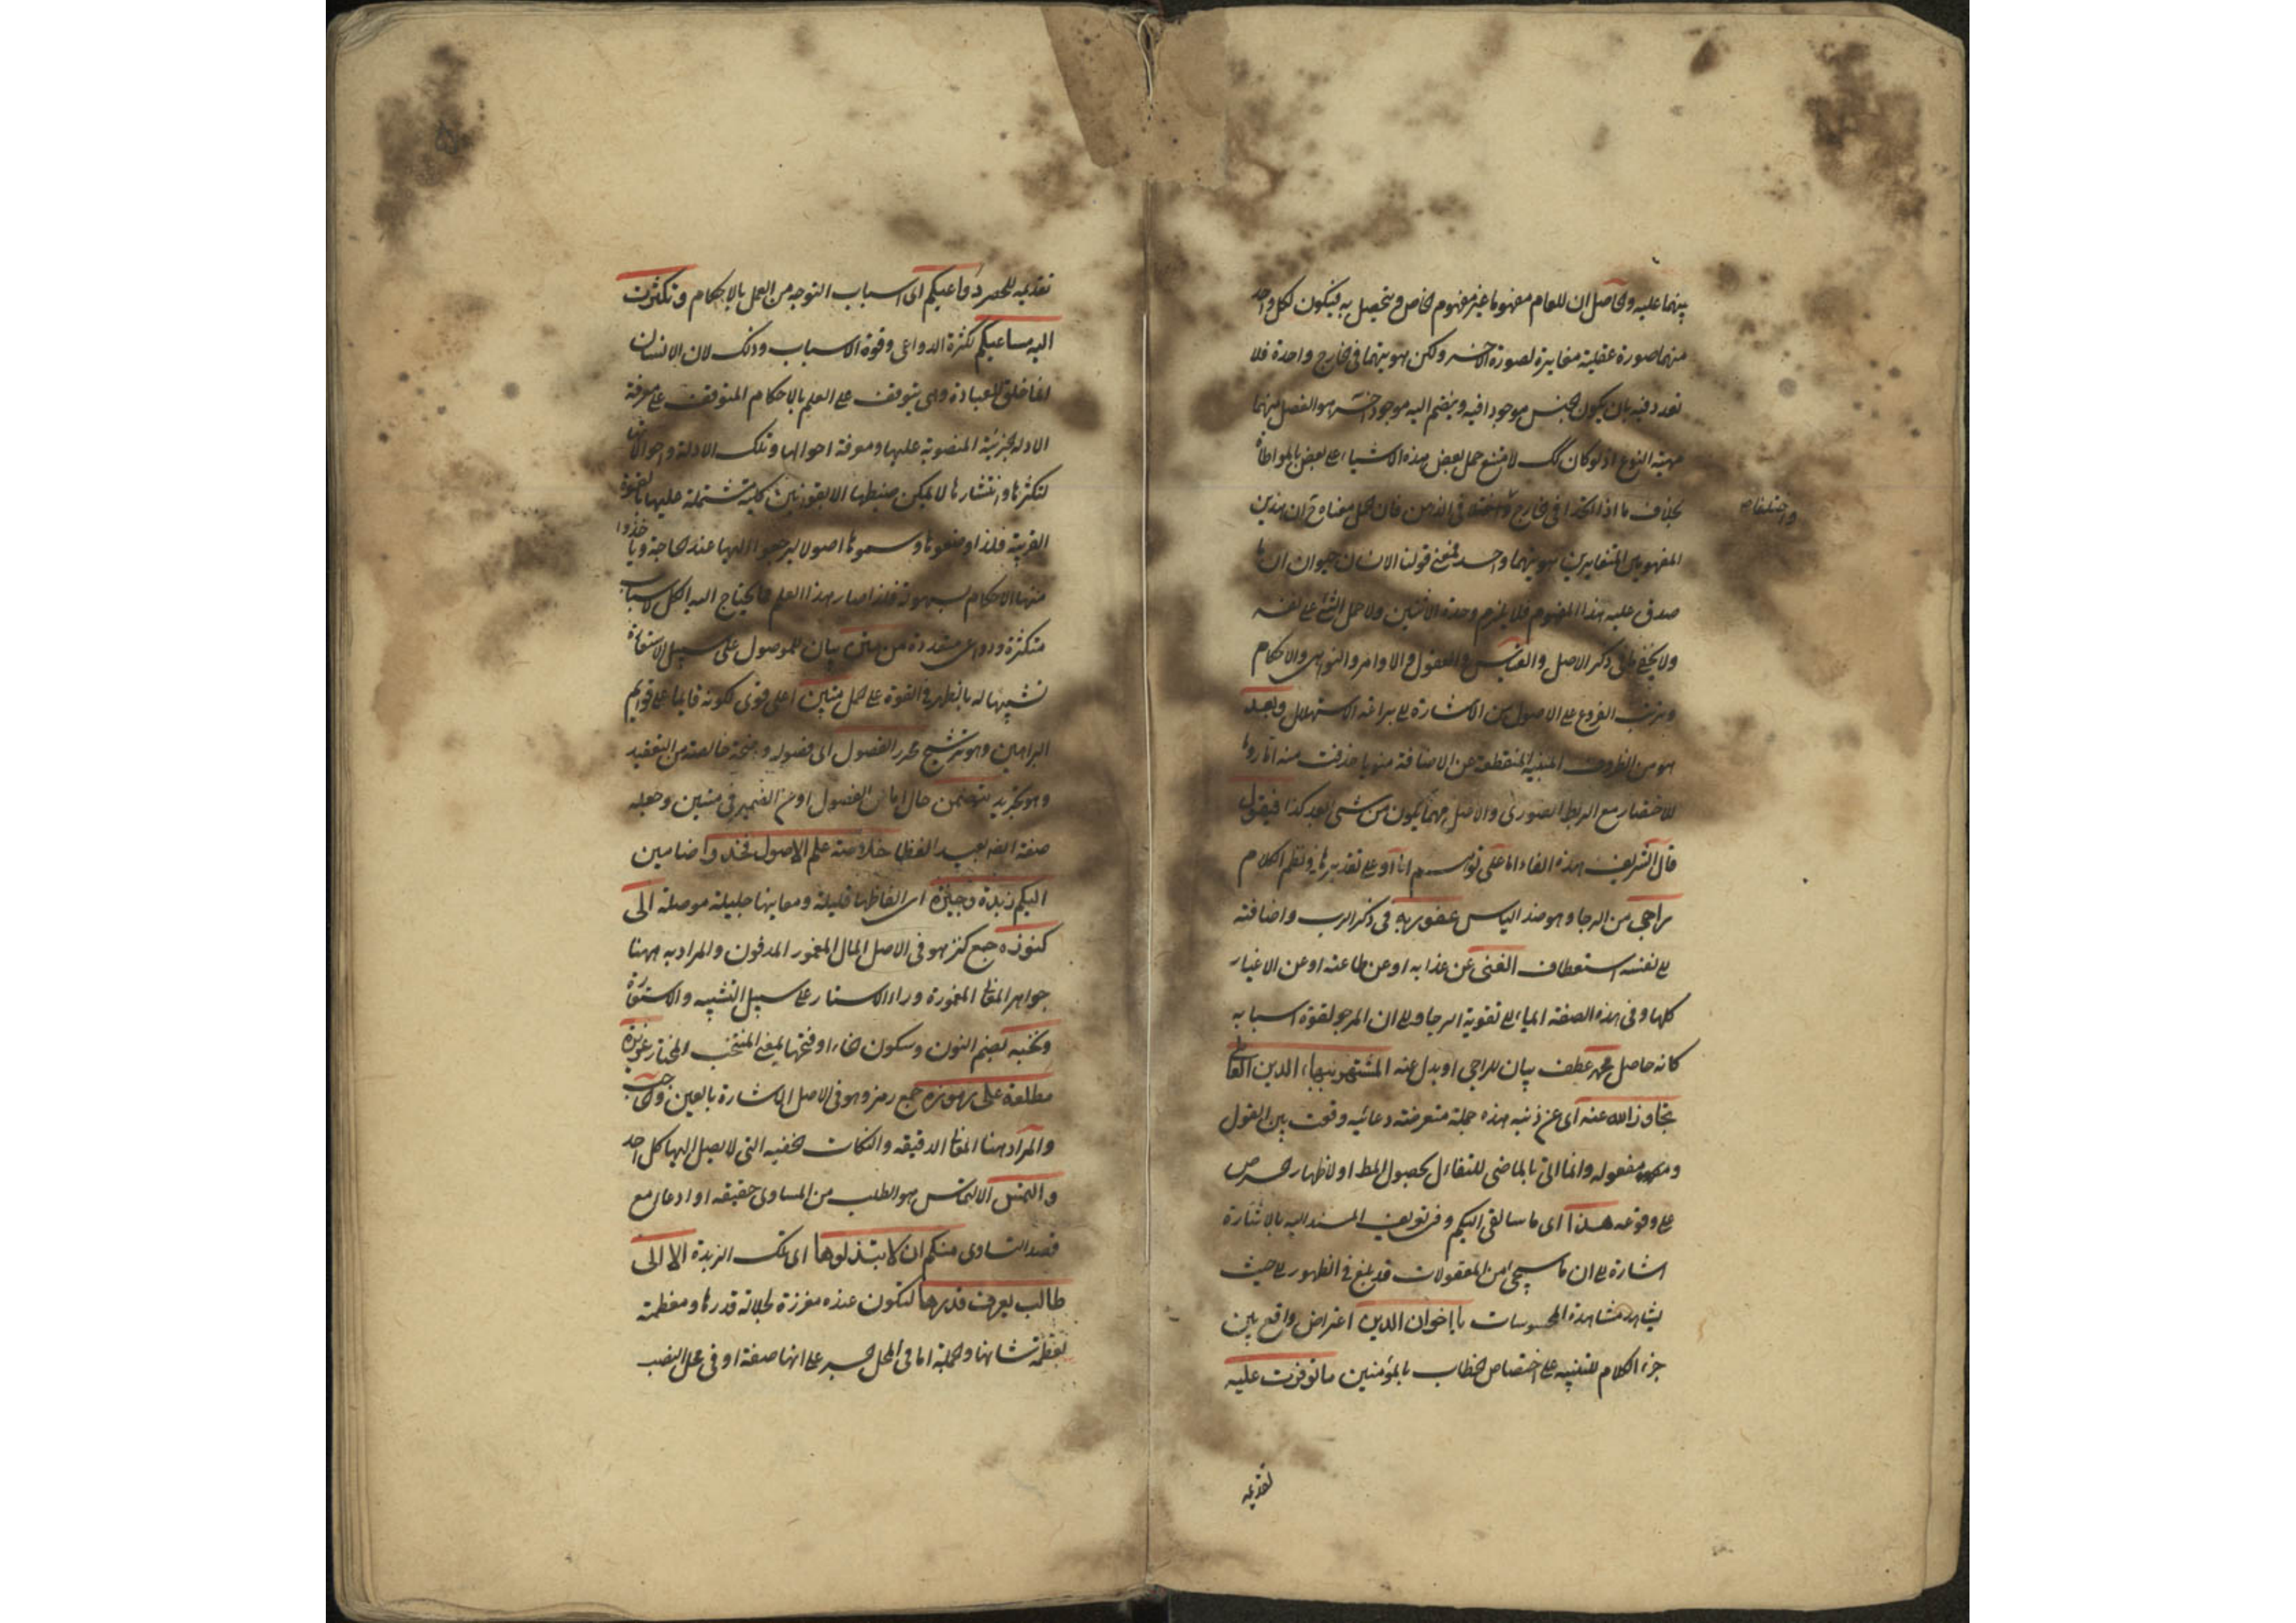 بينهما عليه والحاصل ان للعام مفهوما غير مفهوم الخاص ويتحصل به فيكون لكل واحد
منهما صورة عقلية مغايرة لصورة الآخر ولكن هويتهما في الخارج واحدة فلا
تعدد فيه بان يكون الجنس موجودا فيه وينضم اليه موجود آخر هو الفصل منهما
مهية النوع اذ لو كان كك لامتنع حمل بعض هذه الاشياء على بعض بالمواطاة
بخلاف ما اذا اتحدا في الخارج واختلفا في الذهن فان الحمل معناه ح ان هذين
واختلفا صح
المفهومين المتغايرين هويتهما واحد فمعنى قولنا الانسان حيوان ان ما
صدق عليه هذا المفهوم فلا يلزم وحدة الاثنين ولا حمل الشئ على نفسه
ولا يخفى ما في ذكر الاصل والقياس والعقول والاوامر والنواهي والاحكام
وترتب الفروع على الاصول من الاشارة الى براعة الاستهلال وبعد
هو من الظروف المبنية المنقطعة عن الاضافة منويا حذفت منه اما روما
للاختصار مع الربط الصوري والاصل مهما يكون من شئ بعد كذا فيقول
قال الشريف هذه الفاء اما على توهم اما او على تقديرها في نظم الكلام
راجي من الرجا وهو ضد الياس عفو ربه في ذكر الرب واضافته
الى نفسه استعطاف الغني عن عذابه او عن طاعته او عن الاغيار
كلها وفي هذه الصفة ايماء الى تقوية الرجا والى ان المرجو لقوة اسبابه
كانه حاصل محمد عطف بيان للراجي او بدل عنه المشتهر ببهاء الدين العاملي
تجاوز الله عنه اي عن ذنبه هذه جملة معترضة دعائيه وقعت بين القول
و مفعوله وانما اتى بالماضي للتفاءل بحصول المط او لاظهار الحرص
على وقوعه هذا اي ما سالقي اليكم وفي تعريف المسند اليه بالاشارة
اشارة الى ان ما سيجئ من المعقولات قد بلغ في الظهور الى حيث
يشاهد مشاهدة المحسوسات يا اخوان الدين اعتراض واقع بين
جزء الكلام للتنبيه على اختصاص الخطاب بالمؤمنين ما توفرت عليه
تقديمه
تقديمه للحصر دواعيكم اي اسباب التوجه من العمل بالاحكام وتكثرت
اليه مساعيكم لكثرة الدواعي وقوة الاسباب وذلك لان الانسان
انما خلق للعبادة وهي يتوقف على العلم بالاحكام المتوقف على معرفة
الادلة الجزئية المنصوبة عليها ومعرفة احوالها وتلك الادلة واحوالها
لتكثرها وانتشارها لا يمكن ضبطها الا بقوانين كلية مشتملة عليها بالقوة
القريبة فلذا وضعوها وسموها اصولا ليرجعوا اليها عند الحاجة وياخذوا
منها الاحكام بسهولة فلذا صار هذا العلم مما يحتاج اليه الكل لاسباب
متكثرة ودواعي متعددة من متن بيان للموصول على سبيل الاستعارة
تشبيها له بالظهر في القوة على الحمل متين اعلى قوى لكونه قايما على قوايم
البراهين وهو ترشيح محرر الفصول اي فصوله واضحة خالصة من التعقيد
وهو تجريد يتضمن حال اما من الفصول او من الضمير في متين وجعله
صفة الفه بعيد لفظا خلاصة علم الاصول فخذوا ضامين
اليكم زبدة وجيزة اي الفاظها قليلة ومعانيها جليلة موصلة الى
كنوزه جمع كنز هو في الاصل المال المغمور المدفون والمراد به ههنا
جواهر المعاني المغمورة وراء الاستار على سبيل التشبيه والاستعارة
ونخبه بضم النون وسكون الخاء او فتحها بمعنى المنتخب المختار عزيزة
مطلعة على رموزه جمع رمز وهو في الاصل الاشارة بالعين والحاجب
والمراد هنا المعاني الدقيقه والنكات الخفيه التي لا يصل اليها كل احد
والتمس الالتماس هو الطلب من المساوي حقيقه او ادعاء مع
قصد التساوي منكم ان لا تبتذلوها اي تلك الزبدة الا الى
طالب يعرف قدرها لتكون عنده معززة لجلالة قدرها ومعظمة
لعظمة شانها والجملة اما في محل الجر على انها صفة او في محل النصب